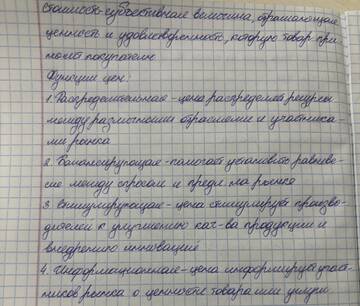 Стоимость-субъективная величина, отражающая
ценность и удовлетворенность, которую товар при-
носит покупателю
Функции цен:
1. Распределительная - цена распределяет ресурсы
между различными отраслями и участника-
ми рынка
2. Балансирующая - помогает установить равнове-
сие между спросом и предл. на рынке
3. Стимулирующая - цена стимулирует произво-
дителей к улучшению кач-ва продукции и
внедрению инноваций
4. Информационная - цена информирует участ-
ников рынка о ценности товара или услуги